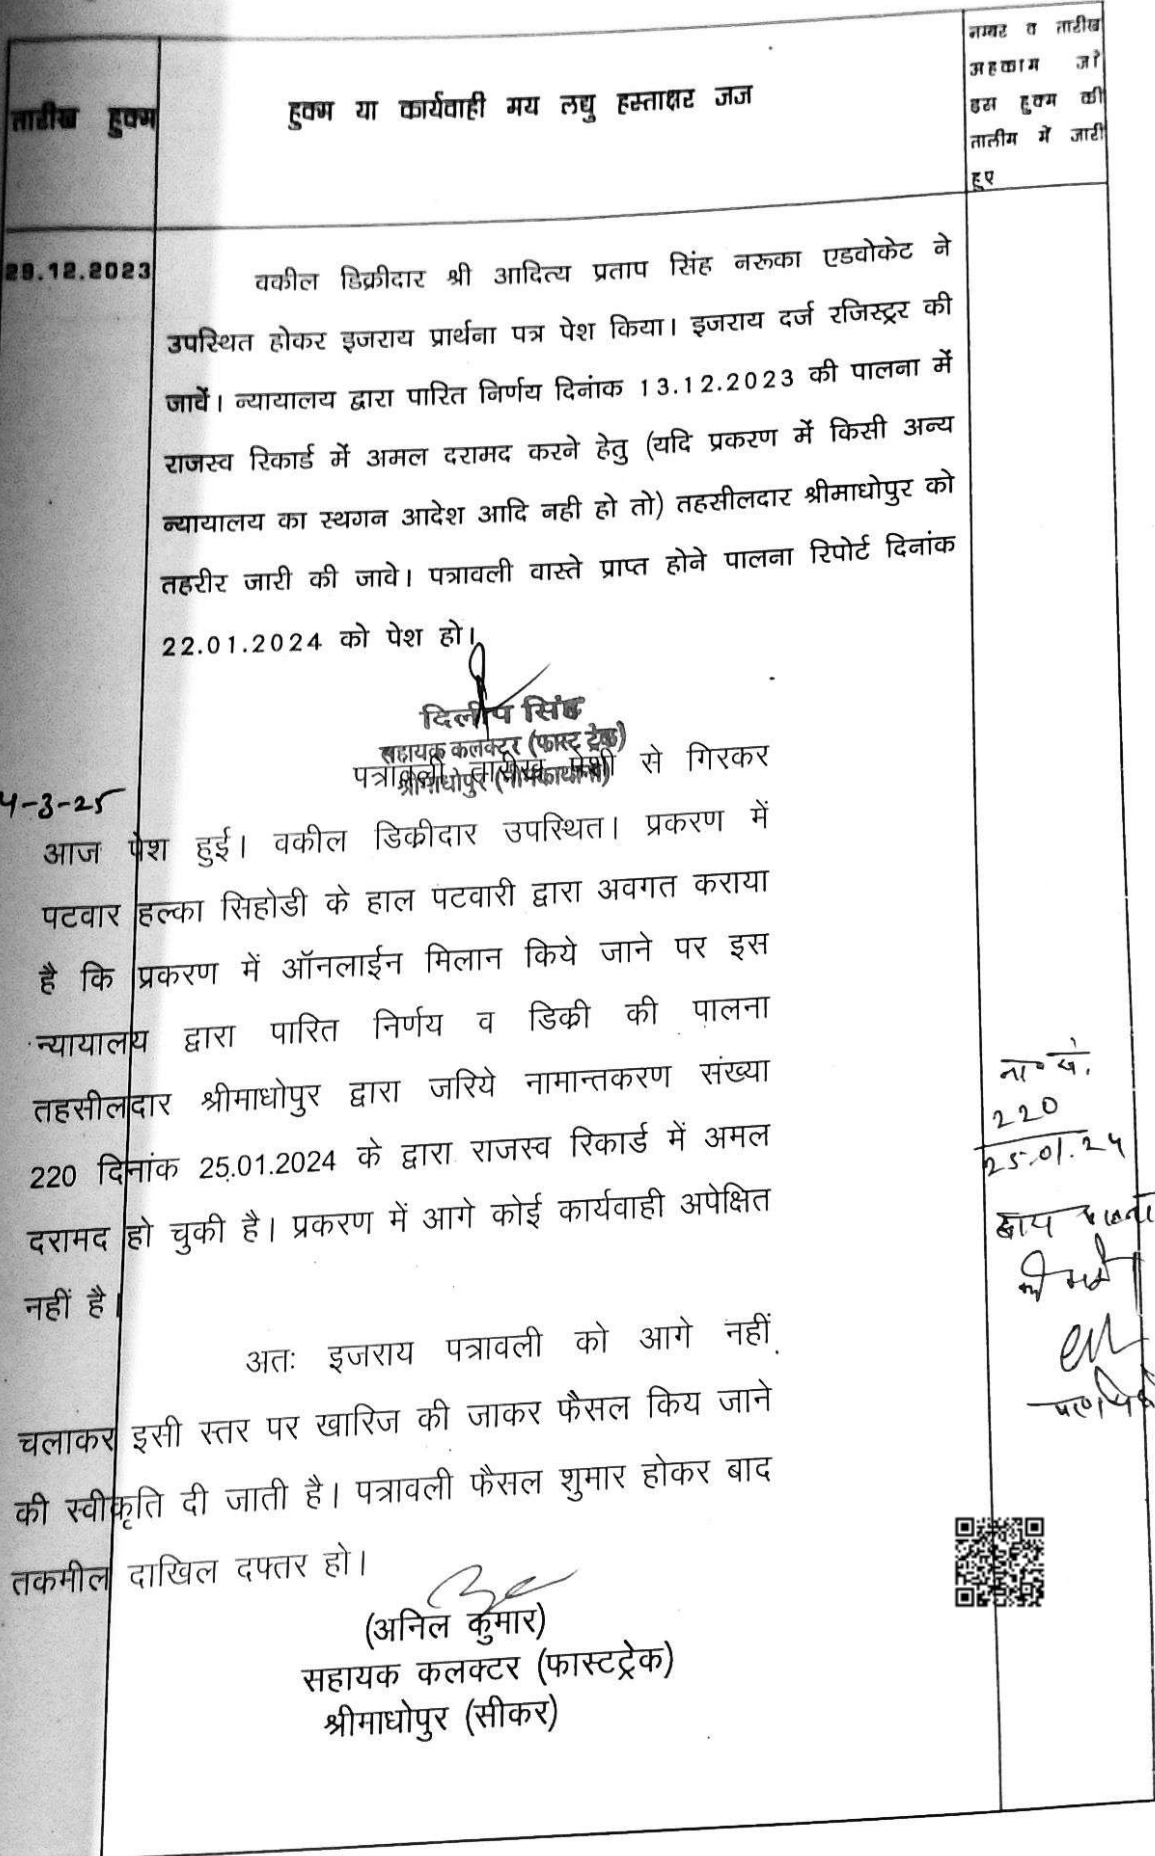 तारीख हुक्म
हुक्म या कार्यवाही मय लघु हस्ताक्षर जज
नम्बर व तारीख
अहकाम जो
इस हुक्म की
तालीम में जारी
हुए
29.12.2023
वकील डिक्रीदार श्री आदित्य प्रताप सिंह नरूका एडवोकेट ने
उपस्थित होकर इजराय प्रार्थना पत्र पेश किया। इजराय दर्ज रजिस्ट्रर की
जावें। न्यायालय द्वारा पारित निर्णय दिनांक 13.12.2023 की पालना में
राजस्व रिकार्ड में अमल दरामद करने हेतु (यदि प्रकरण में किसी अन्य
न्यायालय का स्थगन आदेश आदि नही हो तो) तहसीलदार श्रीमाधोपुर को
तहरीर जारी की जावे। पत्रावली वास्ते प्राप्त होने पालना रिपोर्ट दिनांक
22.01.2024 को पेश हो।
दिलीप सिंह
सहायक कलक्टर (फास्ट ट्रेक)
श्रीमाधोपुर (नीमकाथाना)
4-3-25
पत्रावली तारीख पेशी से गिरकर
आज पेश हुई। वकील डिकीदार उपस्थित। प्रकरण में
पटवार हल्का सिहोडी के हाल पटवारी द्वारा अवगत कराया
है कि प्रकरण में ऑनलाईन मिलान किये जाने पर इस
न्यायालय द्वारा पारित निर्णय व डिकी की पालना
तहसीलदार श्रीमाधोपुर द्वारा जरिये नामान्तकरण संख्या
220 दिनांक 25.01.2024 के द्वारा राजस्व रिकार्ड में अमल
दरामद हो चुकी है। प्रकरण में आगे कोई कार्यवाही अपेक्षित
नहीं है।
अतः इजराय पत्रावली को आगे नहीं
चलाकर इसी स्तर पर खारिज की जाकर फैसल किय जाने
की स्वीकृति दी जाती है। पत्रावली फैसल शुमार होकर बाद
तकमील दाखिल दफ्तर हो।
(अनिल कुमार)
सहायक कलक्टर (फास्टट्रेक)
श्रीमाधोपुर (सीकर)
220
25.01.24